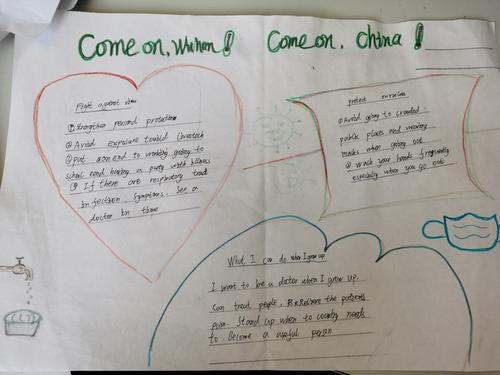 Come on, Wuhan!
Come on, China!
Fight against virus
① Strengthen personal protection
② Avoid exposure to wild livestock
③ put an end to working, going to
school and having a party with illness
④ If there are respiratory tract
infection symptoms. See a
doctor in time
protect ourselves
① Avoid going to crowded
public places and wearing
masks when going out
② Wash your hands frequently
especially when you go out
What I can do when I grow up
I want to be a doctor when I grow up.
Can treat people, Relieve the patients
pain. Stand up when to country needs
to. Become a useful person